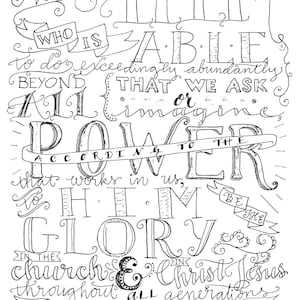 WHO IS ABLE
to do exceedingly abundantly
BEYOND THAT WE ASK
ALL or imagine
ACCORDING TO THE
POWER
that works in us,
to HIM BE THE
GLORY
IN THE church & IN Christ Jesus,
throughout ALL generations